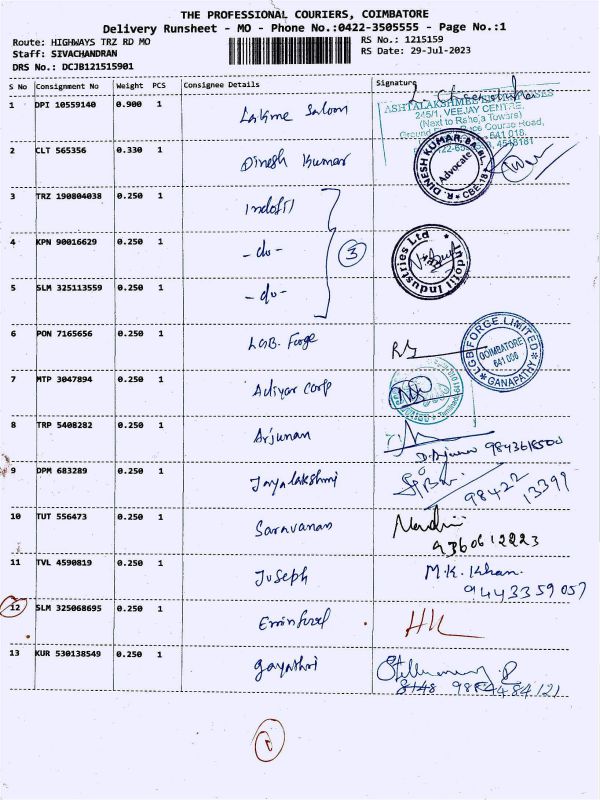 THE PROFESSIONAL COURIERS, COIMBATORE
Delivery Runsheet - MO - Phone No.:0422-3505555 - Page No.:1
Route: HIGHWAYS TRZ RD MO
RS No.: 1215159
Staff: SIVACHANDRAN
RS Date: 29-Jul-2023
DRS No.: DCJB121515901
S No Consignment No Weight PCS Consignee Details Signature
1 DPI 10559140 0.900 1 Lakme Saloon
245/1, VEEJAY CENTRE,
(Next to Raheja Towers)
2 CLT 565356 0.330 1 Dinesh Kumar
R. DINESH KUMAR, Advocate
3 TRZ 190804038 0.250 1 Indofil
4 KPN 90016629 0.250 1 -do- 3
Indofil Industries Ltd
5 SLM 325113559 0.250 1 -do-
6 PON 7165656 0.250 1 LGB. Forge
LGB FORGE LIMITED COIMBATORE 641 006 GANAPATHY
7 MTP 3047894 0.250 1 Adiyar Corp
8 TRP 5408282 0.250 1 Arjunan
9 DPM 683289 0.250 1 Jayalakshmi
98422 13399
10 TUT 556473 0.250 1 Saravanan
9360612223
11 TVL 4590819 0.250 1 Juseph M.K. Khan.
9443359057
12 SLM 325068695 0.250 1
13 KUR 530138549 0.250 1 Gayathri